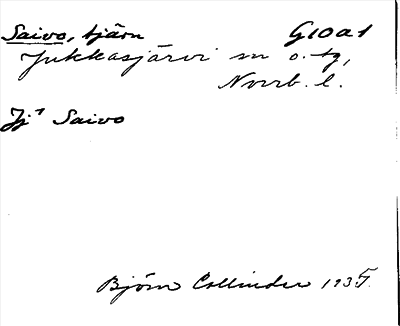 Saivo, tjärn G10a1
Jukkasjärvi sn o. tg,
Norrb. l.
Jj¹ Saivo
Björn Collinder 1935.